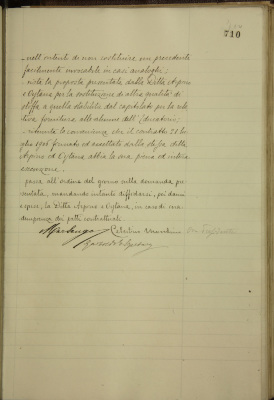 710
nell'intenti di non costituire un precedente
facilmente invocabile in casi analoghi;
vista la proposta presentata dalla Ditta Arpino
e Cytana per la sostituzione di altra qualità di
stoffa a quella stabilita dal capitolato per la rela-
tiva fornitura alle alunne dell'Educatorio;
ritenuta la convenienza che il contratto 21 lu-
glio 1906 firmato ed accettato dalla stessa ditta
Arpino ed Cytana abbia la sua piena ed intera
esecuzione
passa all'ordine del giorno sulla domanda pre-
sentata, mandando intanto diffidarsi, pei danni
e spese, la Ditta Arpino e Cytana, in caso di ina-
dempienza dei patti contrattuali.